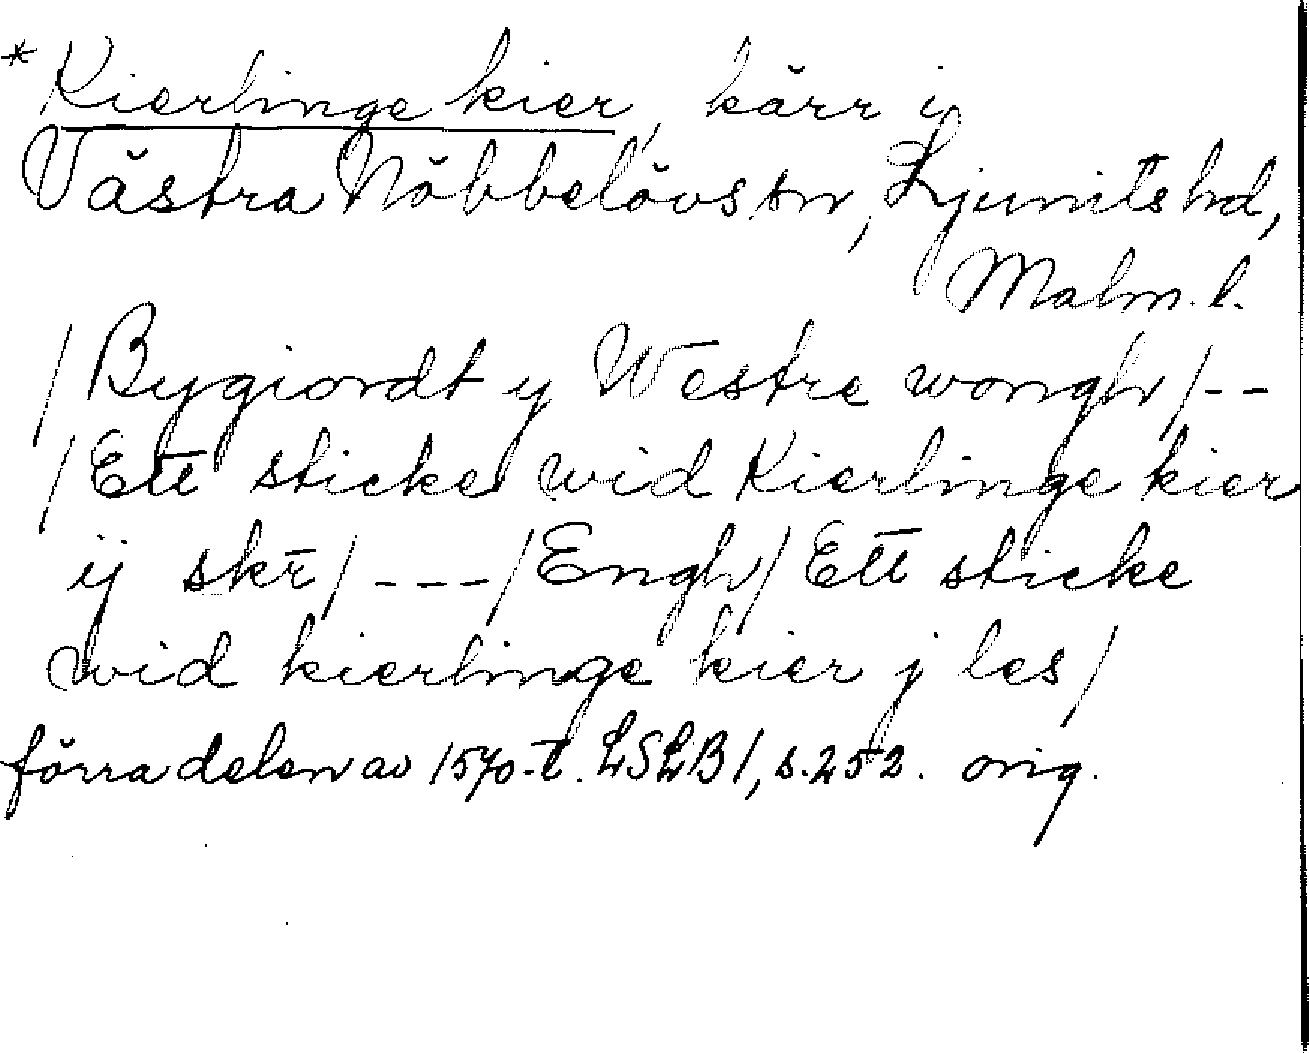 * Kierlinge kier, kärr i
Västra Nöbbelövs sn, Ljunits hd,
Malm. l.
/ Bygiordt y Westre wongh / --
/ Ett sticke wid Kierlinge kier
ij skr̄ / --- / Engh / Ett sticke
wid kierlinge kier j les /
förra delen av 1570-t. LSLB 1, s. 252. orig.